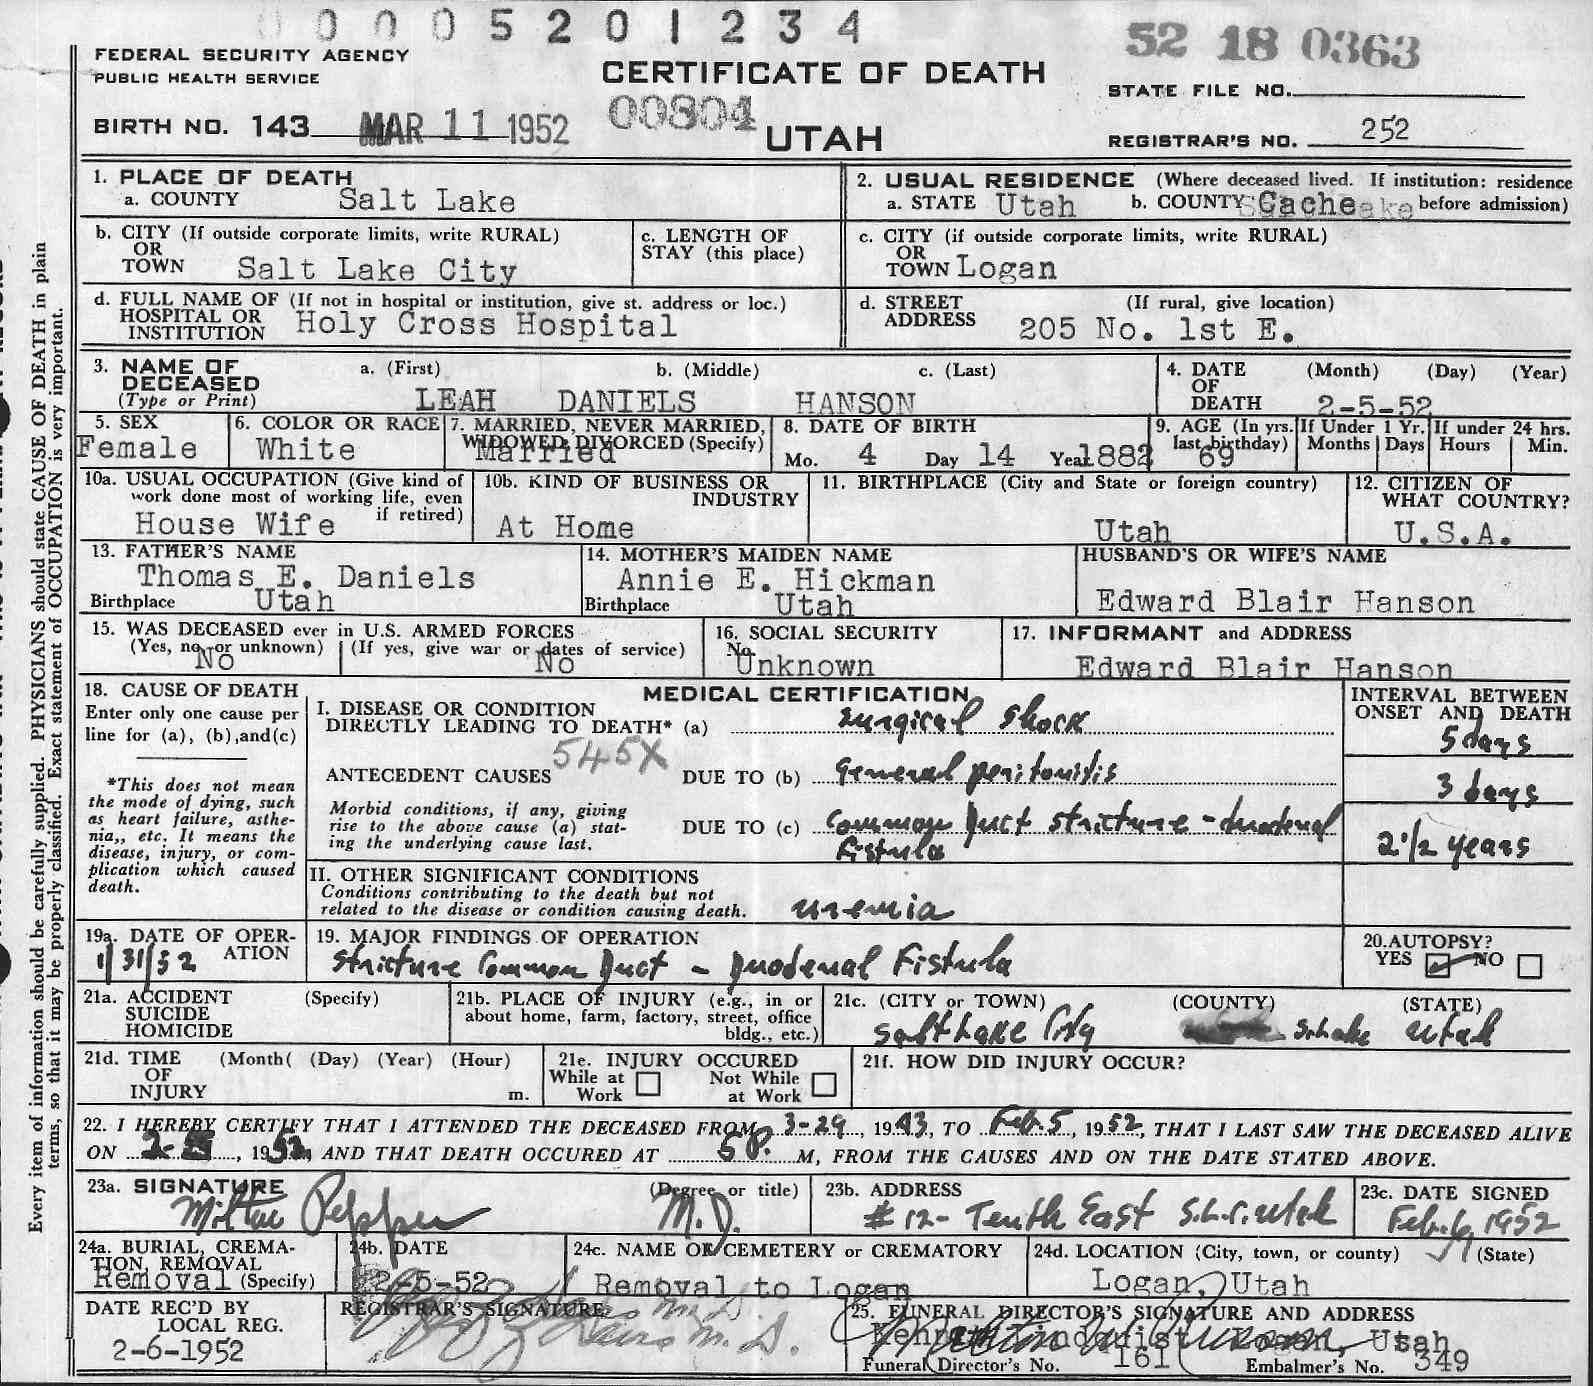 0 0 0 5 2 0 1 2 3 4
52 18 0363
FEDERAL SECURITY AGENCY
PUBLIC HEALTH SERVICE
CERTIFICATE OF DEATH
STATE FILE NO.
BIRTH NO. 143 MAR 11 1952
00804
UTAH
REGISTRAR'S NO. 252
1. PLACE OF DEATH
a. COUNTY Salt Lake
2. USUAL RESIDENCE (Where deceased lived. If institution: residence
a. STATE Utah b. COUNTY Cache before admission)
b. CITY (If outside corporate limits, write RURAL)
OR
TOWN Salt Lake City
c. LENGTH OF
STAY (this place)
c. CITY (if outside corporate limits, write RURAL)
OR
TOWN Logan
d. FULL NAME OF (If not in hospital or institution, give st. address or loc.)
HOSPITAL OR
INSTITUTION Holy Cross Hospital
d. STREET (If rural, give location)
ADDRESS 205 No. 1st E.
3. NAME OF
DECEASED
(Type or Print)
a. (First) b. (Middle) c. (Last)
LEAH DANIELS HANSON
4. DATE (Month) (Day) (Year)
OF
DEATH 2-5-52
5. SEX
Female
6. COLOR OR RACE
White
7. MARRIED, NEVER MARRIED,
WIDOWED, DIVORCED (Specify)
Married
8. DATE OF BIRTH
Mo. 4 Day 14 Year 1882
9. AGE (In yrs.
last birthday)
69
If Under 1 Yr.
Months Days
If under 24 hrs.
Hours Min.
10a. USUAL OCCUPATION (Give kind of
work done most of working life, even
if retired)
House Wife
10b. KIND OF BUSINESS OR
INDUSTRY
At Home
11. BIRTHPLACE (City and State or foreign country)
Utah
12. CITIZEN OF
WHAT COUNTRY?
U.S.A.
13. FATHER'S NAME
Thomas E. Daniels
Birthplace Utah
14. MOTHER'S MAIDEN NAME
Annie E. Hickman
Birthplace Utah
HUSBAND'S OR WIFE'S NAME
Edward Blair Hanson
15. WAS DECEASED ever in U.S. ARMED FORCES
(Yes, no, or unknown) (If yes, give war or dates of service)
No No
16. SOCIAL SECURITY
No.
Unknown
17. INFORMANT and ADDRESS
Edward Blair Hanson
18. CAUSE OF DEATH
Enter only one cause per
line for (a), (b),and(c)
*This does not mean
the mode of dying, such
as heart failure, asthe-
nia,, etc. It means the
disease, injury, or com-
plication which caused
death.
MEDICAL CERTIFICATION
I. DISEASE OR CONDITION
DIRECTLY LEADING TO DEATH* (a) Surgical Shock
545X
ANTECEDENT CAUSES DUE TO (b) General peritonitis
Morbid conditions, if any, giving
rise to the above cause (a) stat-
ing the underlying cause last.
DUE TO (c) Common Duct stricture - duodenal
Fistula
INTERVAL BETWEEN
ONSET AND DEATH
5 days
3 days
2 1/2 years
II. OTHER SIGNIFICANT CONDITIONS
Conditions contributing to the death but not
related to the disease or condition causing death. uremia
19a. DATE OF OPER-
ATION
1/31/52
19. MAJOR FINDINGS OF OPERATION
Stricture Common Duct - Duodenal Fistula
20.AUTOPSY?
YES NO
21a. ACCIDENT (Specify)
SUICIDE
HOMICIDE
21b. PLACE OF INJURY (e.g., in or
about home, farm, factory, street, office
bldg., etc.)
21c. (CITY or TOWN) (COUNTY) (STATE)
Salt Lake City S. Lake Utah
21d. TIME (Month( (Day) (Year) (Hour)
OF
INJURY m.
21e. INJURY OCCURED
While at Not While
Work at Work
21f. HOW DID INJURY OCCUR?
22. I HEREBY CERTIFY THAT I ATTENDED THE DECEASED FROM 3-29, 1943, TO Feb. 5, 1952, THAT I LAST SAW THE DECEASED ALIVE
ON 2-5, 1952, AND THAT DEATH OCCURED AT 5 P. M, FROM THE CAUSES AND ON THE DATE STATED ABOVE.
23a. SIGNATURE (Degree or title)
Milton Pepper M.D.
23b. ADDRESS
#12 - Tenth East S.L.C. Utah
23c. DATE SIGNED
Feb. 6, 1952
24a. BURIAL, CREMA-
TION, REMOVAL
Removal (Specify)
24b. DATE
2-5-52
24c. NAME OF CEMETERY or CREMATORY
Removal to Logan
24d. LOCATION (City, town, or county) (State)
Logan, Utah
DATE REC'D BY
LOCAL REG.
2-6-1952
REGISTRAR'S SIGNATURE
M.D.
25. FUNERAL DIRECTOR'S SIGNATURE AND ADDRESS
Kenneth Lindquist Logan, Utah
Funeral Director's No. 161 Embalmer's No. 349
Every item of information should be carefully supplied. PHYSICIANS should state CAUSE OF DEATH in plain
terms, so that it may be properly classified. Exact statement of OCCUPATION is very important.